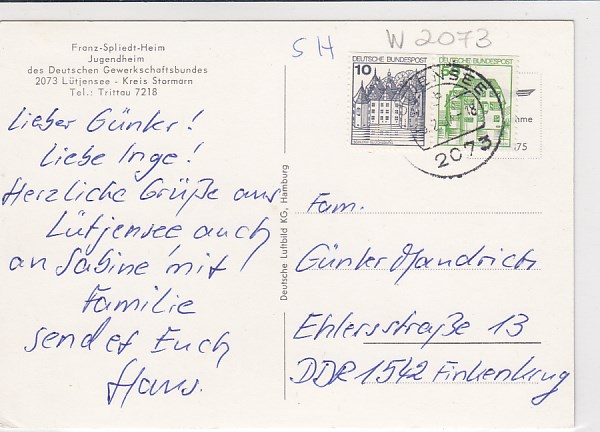 Franz-Spliedt-Heim
Jugendheim
des Deutschen Gewerkschaftsbundes
2073 Lütjensee - Kreis Stormarn
Tel.: Trittau 7218
Lieber Günter!
Liebe Inge!
Herzliche Grüße aus
Lütjensee auch
an Sabine mit
Familie
sendet Euch
Hans.
Deutsche Luftbild KG, Hamburg
SH
W 2073
DEUTSCHE BUNDESPOST
10
DEUTSCHE BUNDESPOST
2073
75
Fam.
Günter Mandrich
Ehlersstraße 13
DDR 1542 Finkenkrug